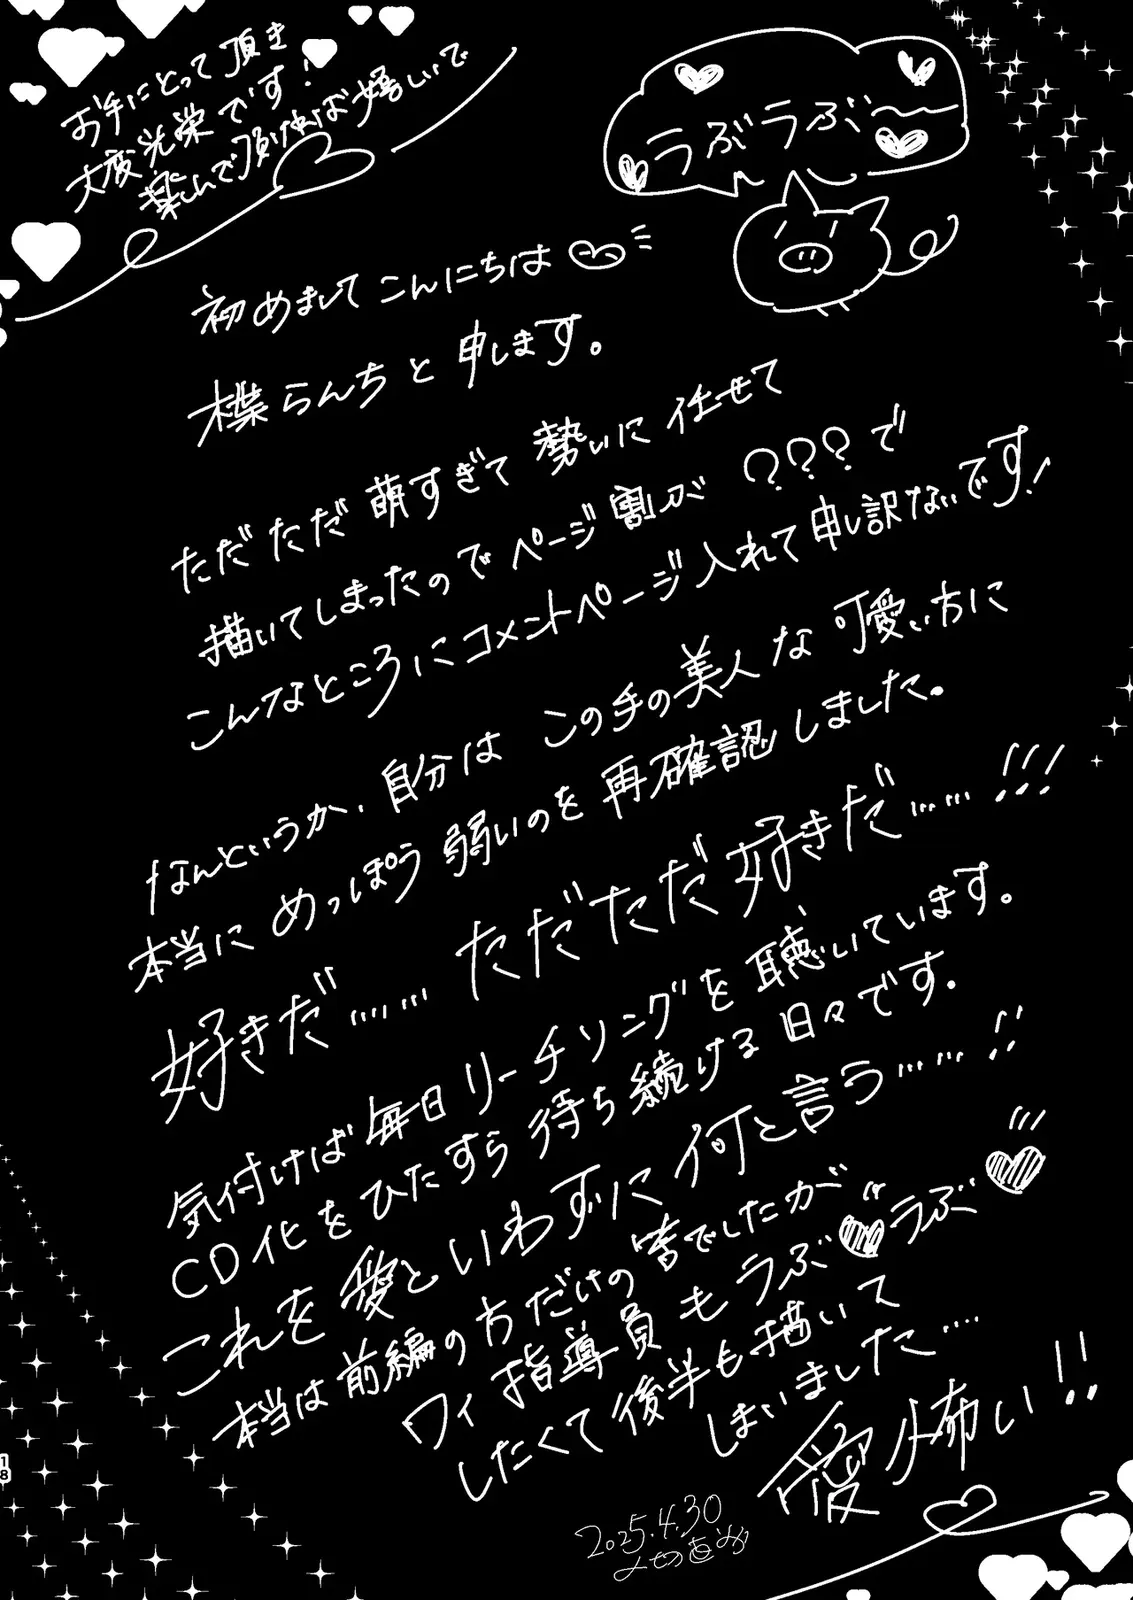 お手にとって頂き
大変光栄です！
楽しんで頂ければ嬉しいで
ラぶラぶ〜
初めましてこんにちは
楪らんちと申します。
ただただ萌すぎて勢いに任せて
描いてしまったのでページ割が???で
こんなところにコメントページ入れて申し訳ないです！
なんというか、自分はこの手の美人な可愛い方に
本当にめっぽう弱いのを再確認しました。
好きだ……ただただ好きだ……!!!
気付けば毎日リーチソングを聴いています。
CD化をひたすら待ち続ける日々です。
これを愛といわずに何と言う……!!
本当は前編の方だけの筈でしたが
ワイ指導員もラぶラぶ
したくて後半も描いて
しまいました…
愛怖い!!
2025.4.30
18